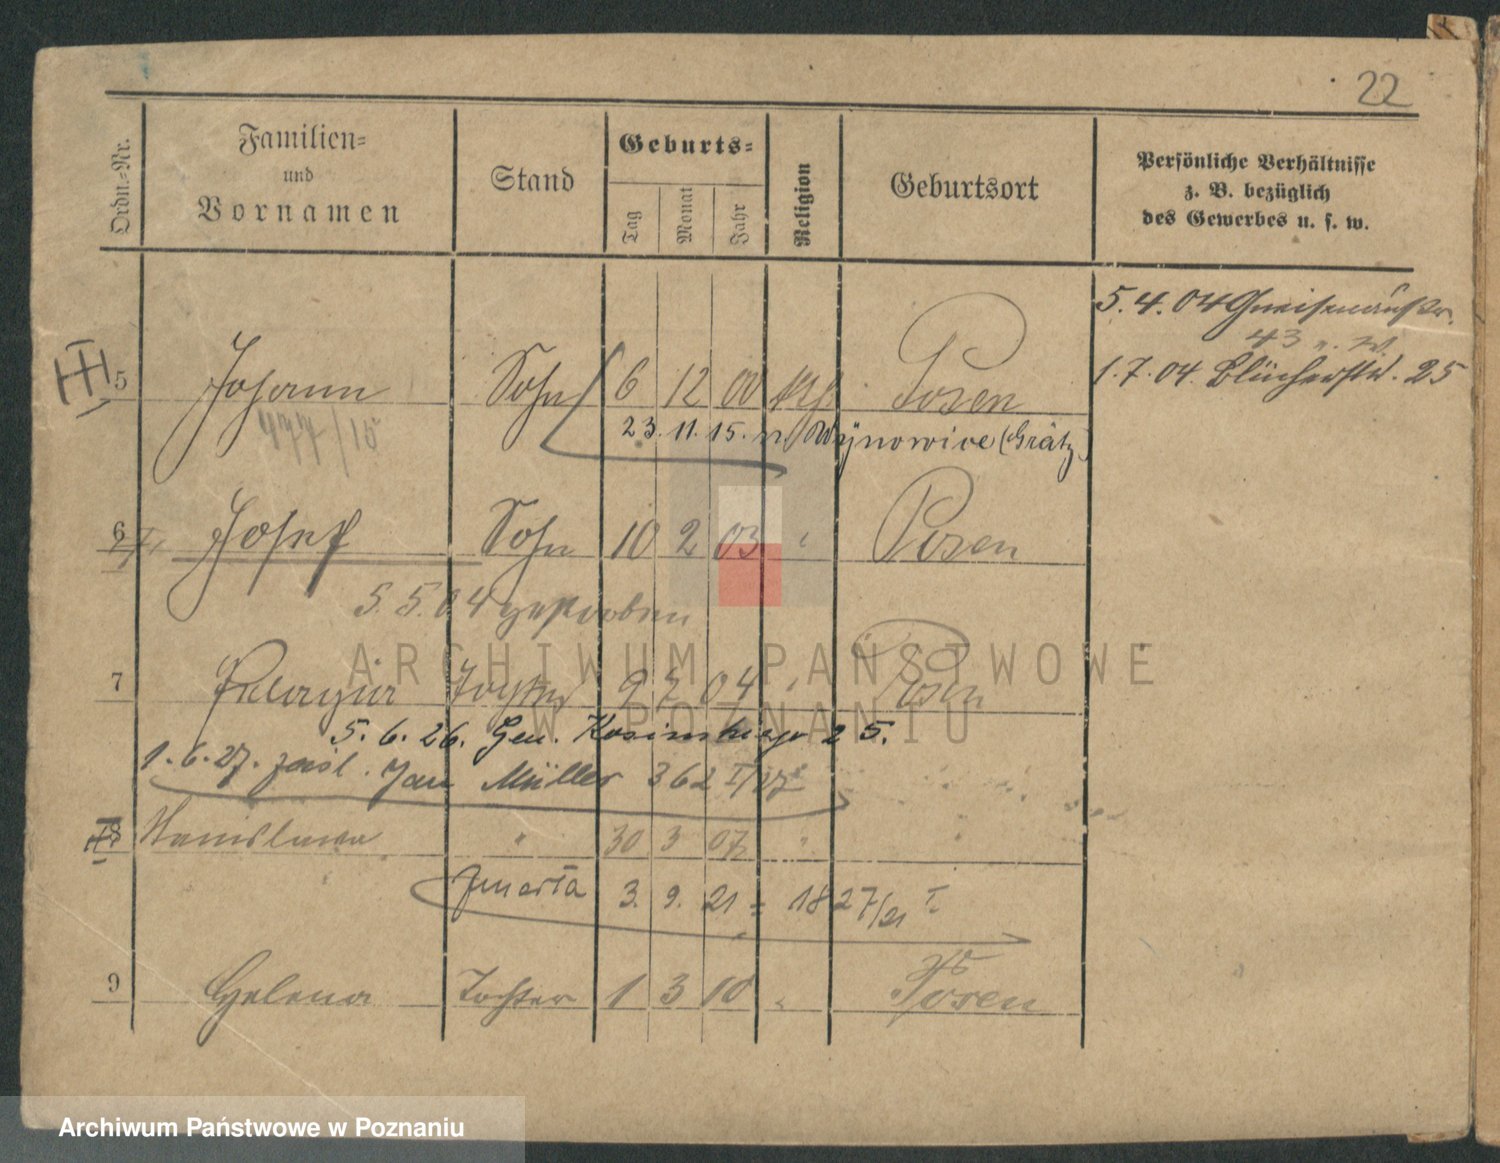 22
Ordn.-Nr.
Familien-
und
Vornamen
Stand
Geburts-
Tag
Monat
Jahr
Religion
Geburtsort
Persönliche Verhältnisse
z. B. bezüglich
des Gewerbes u. s. w.
5.4.04 Gneisenaustr.
43
1.7.04 Blücherstr. 25
5 Johann Sohn 6 12 00 kth Posen
977/15
23. 11. 15. n. Woynowice (Grätz)
6 Josef Sohn 10 2 03 " Posen
5.5.04 gestorben
ARCHIWUM PAŃSTWOWE
W POZNANIU
7 Pelagia Tochter 9 7 04 " Posen
5. 6. 26. Gen. Kosinskiego 25.
1.6.27. zaśl. Jan Müller 362 I/27
8 Stanislawa " 30 3 07 " "
zmarła 3. 9. 21 = 1827/21 I.
9 Helena Tochter 1 3 10 " Posen
Archiwum Państwowe w Poznaniu